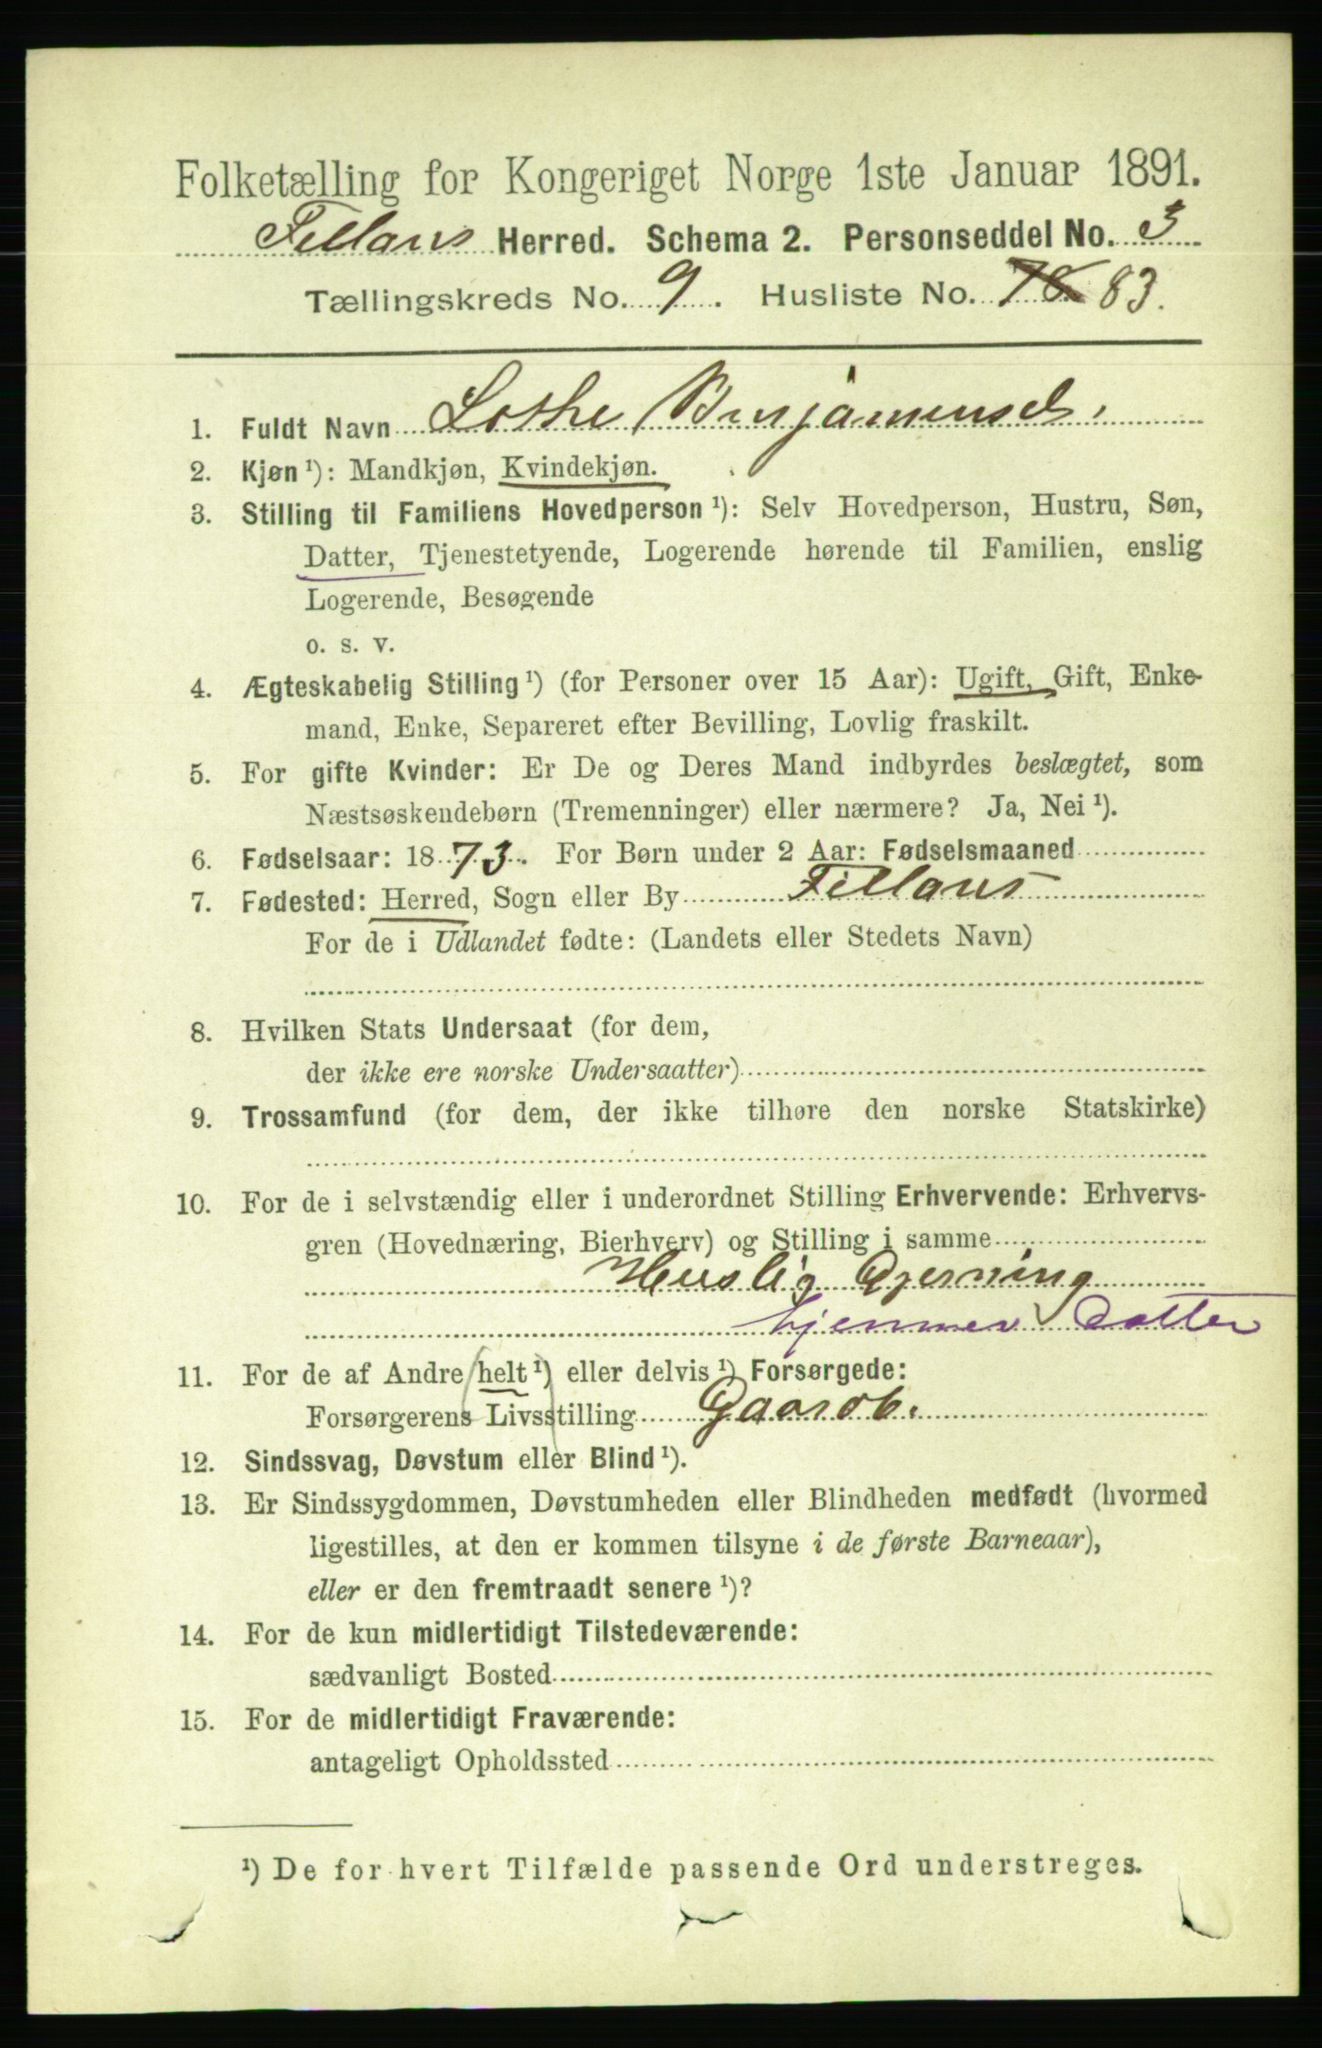 Folketælling for Kongeriget Norge 1ste Januar 1891.
Fillans Herred. Schema 2. Personseddel No. 3
Tællingskreds No. 9. Husliste No. 78 83.
1. Fuldt Navn Lothe Benjaminsd.
2. Kjøn ¹): Mandkjøn, Kvindekjøn.
3. Stilling til Familiens Hovedperson ¹): Selv Hovedperson, Hustru, Søn,
Datter, Tjenestetyende, Logerende hørende til Familien, enslig
Logerende, Besøgende
o. s. v.
4. Ægteskabelig Stilling ¹) (for Personer over 15 Aar): Ugift, Gift, Enke-
mand, Enke, Separeret efter Bevilling, Lovlig fraskilt.
5. For gifte Kvinder: Er De og Deres Mand indbyrdes beslægtet, som
Næstsøskendebørn (Tremenninger) eller nærmere? Ja, Nei ¹).
6. Fødselsaar: 1873. For Børn under 2 Aar: Fødselsmaaned
7. Fødested: Herred, Sogn eller By Fillans
For de i Udlandet fødte: (Landets eller Stedets Navn)
8. Hvilken Stats Undersaat (for dem,
der ikke ere norske Undersaatter)
9. Trossamfund (for dem, der ikke tilhøre den norske Statskirke)
10. For de i selvstændig eller i underordnet Stilling Erhvervende: Erhvervs-
gren (Hovednæring, Bierhverv) og Stilling i samme
Huslig Gjerning
hjemmev Datter
11. For de af Andre helt ¹) eller delvis ¹) Forsørgede:
Forsørgerens Livsstilling Gaardb.
12. Sindssvag, Døvstum eller Blind ¹).
13. Er Sindssygdommen, Døvstumheden eller Blindheden medfødt (hvormed
ligestilles, at den er kommen tilsyne i de første Barneaar),
eller er den fremtraadt senere ¹)?
14. For de kun midlertidigt Tilstedeværende:
sædvanligt Bosted
15. For de midlertidigt Fraværende:
antageligt Opholdssted
¹) De for hvert Tilfælde passende Ord understreges.